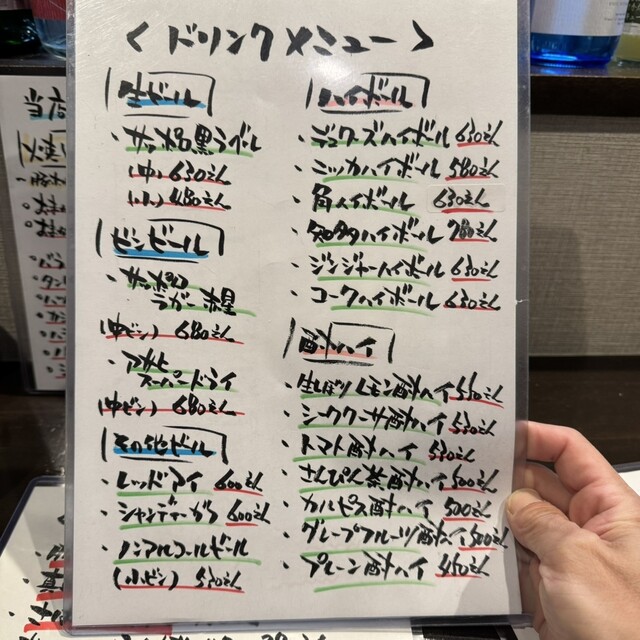 <ドリンクメニュー>
生ビール
・サッポロ黒ラベル
(中) 630えん
(小) 480えん
ビンビール
・サッポロ
ラガー赤星
(中ビン) 680えん
・アサヒ
スーパードライ
(中ビン) 680えん
その他ビール
・レッドアイ 600えん
・シャンディーガフ 600えん
・ノンアルコールビール
(小ビン) 530えん
ハイボール
・デュワーズハイボール 630えん
・ニッカハイボール 580えん
・角ハイボール 630えん
・知多ハイボール 780えん
・ジンジャーハイボール 630えん
・コークハイボール 630えん
酎ハイ
・生しぼりレモン酎ハイ 550えん
・シークワーサ酎ハイ 530えん
・トマト酎ハイ 530えん
・さんぴん茶酎ハイ 500えん
・カルピス酎ハイ 500えん
・グレープフルーツ酎ハイ 500えん
・プレーン酎ハイ 450えん
当店